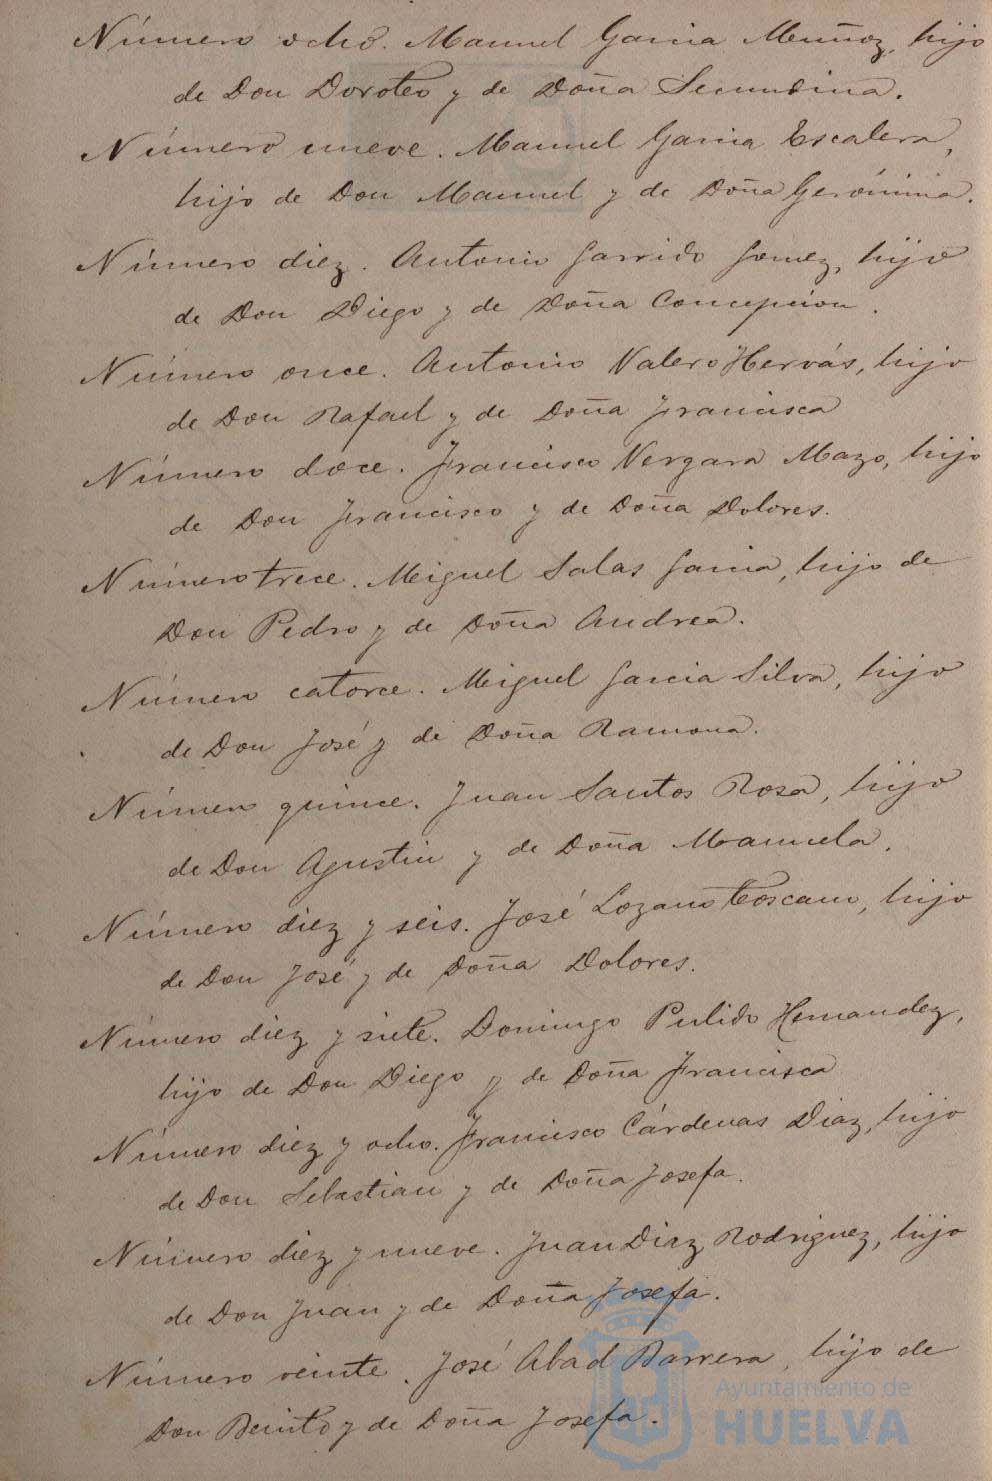 Número ocho. Manuel Garcia Muñoz, hijo
de Don Doroteo y de Doña Secundina.
Número nueve. Manuel Garcia Escalera,
hijo de Don Manuel y de Doña Gerónima.
Número diez. Antonio Garrido Gomez, hijo
de Don Diego y de Doña Concepcion.
Número once. Antonio Valero Hervás, hijo
de Don Rafael y de Doña Francisca
Número doce. Francisco Vergara Mazo, hijo
de Don Francisco y de Doña Dolores.
Número trece. Miguel Salas Garcia, hijo de
Don Pedro y de Doña Andrea.
Número catorce. Miguel Garcia Silva, hijo
de Don José y de Doña Ramona.
Número quince. Juan Santos Rosa, hijo
de Don Agustin y de Doña Manuela.
Número diez y seis. José Lozano Toscano, hijo
de Don José y de Doña Dolores.
Número diez y siete. Domingo Pulido Hernandez,
hijo de Don Diego y de Doña Francisca
Número diez y ocho. Francisco Cárdenas Diaz, hijo
de Don Sebastian y de Doña Josefa.
Número diez y nueve. Juan Diaz Rodriguez, hijo
de Don Juan y de Doña Josefa.
Número veinte. José Abad Barrera, hijo de
Don Benito y de Doña Josefa.
Ayuntamiento de
HUELVA